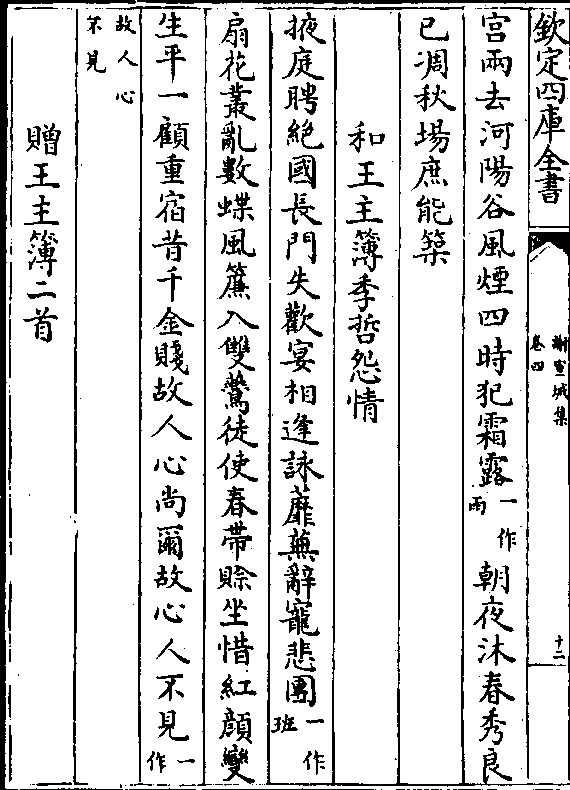 欽定四庫全書
謝宣城集
卷四
十二
宮兩去河陽谷風煙四時犯霜露一作雨朝夜沐春秀良
已凋秋場庶能築
和王主簿季哲怨情
掖庭聘絶國長門失歡宴相逢詠蘼蕪辭寵悲團一作班
扇花叢亂數蝶風簾入雙鷰徒使春帶賒坐惜紅顔變
生平一顧重宿昔千金賤故人心尚爾故心人不見一作
故人心不見
贈王主簿二首